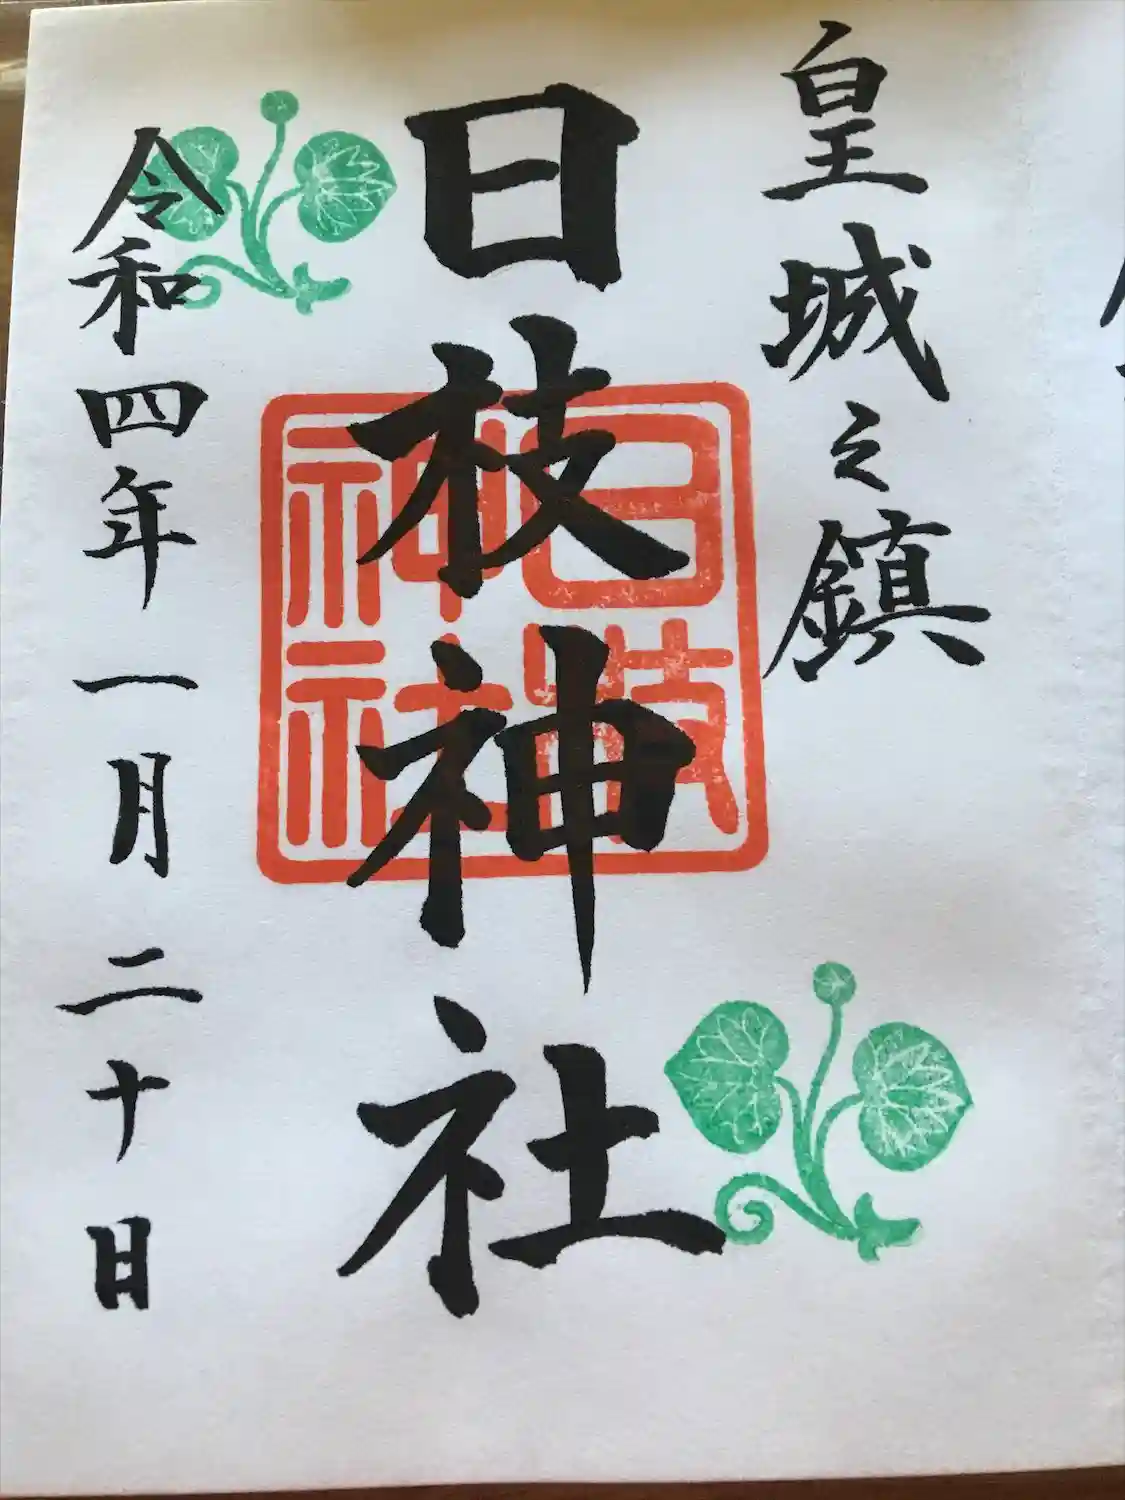 皇城之鎮
日枝神社
日枝
神社
令和四年一月二十日